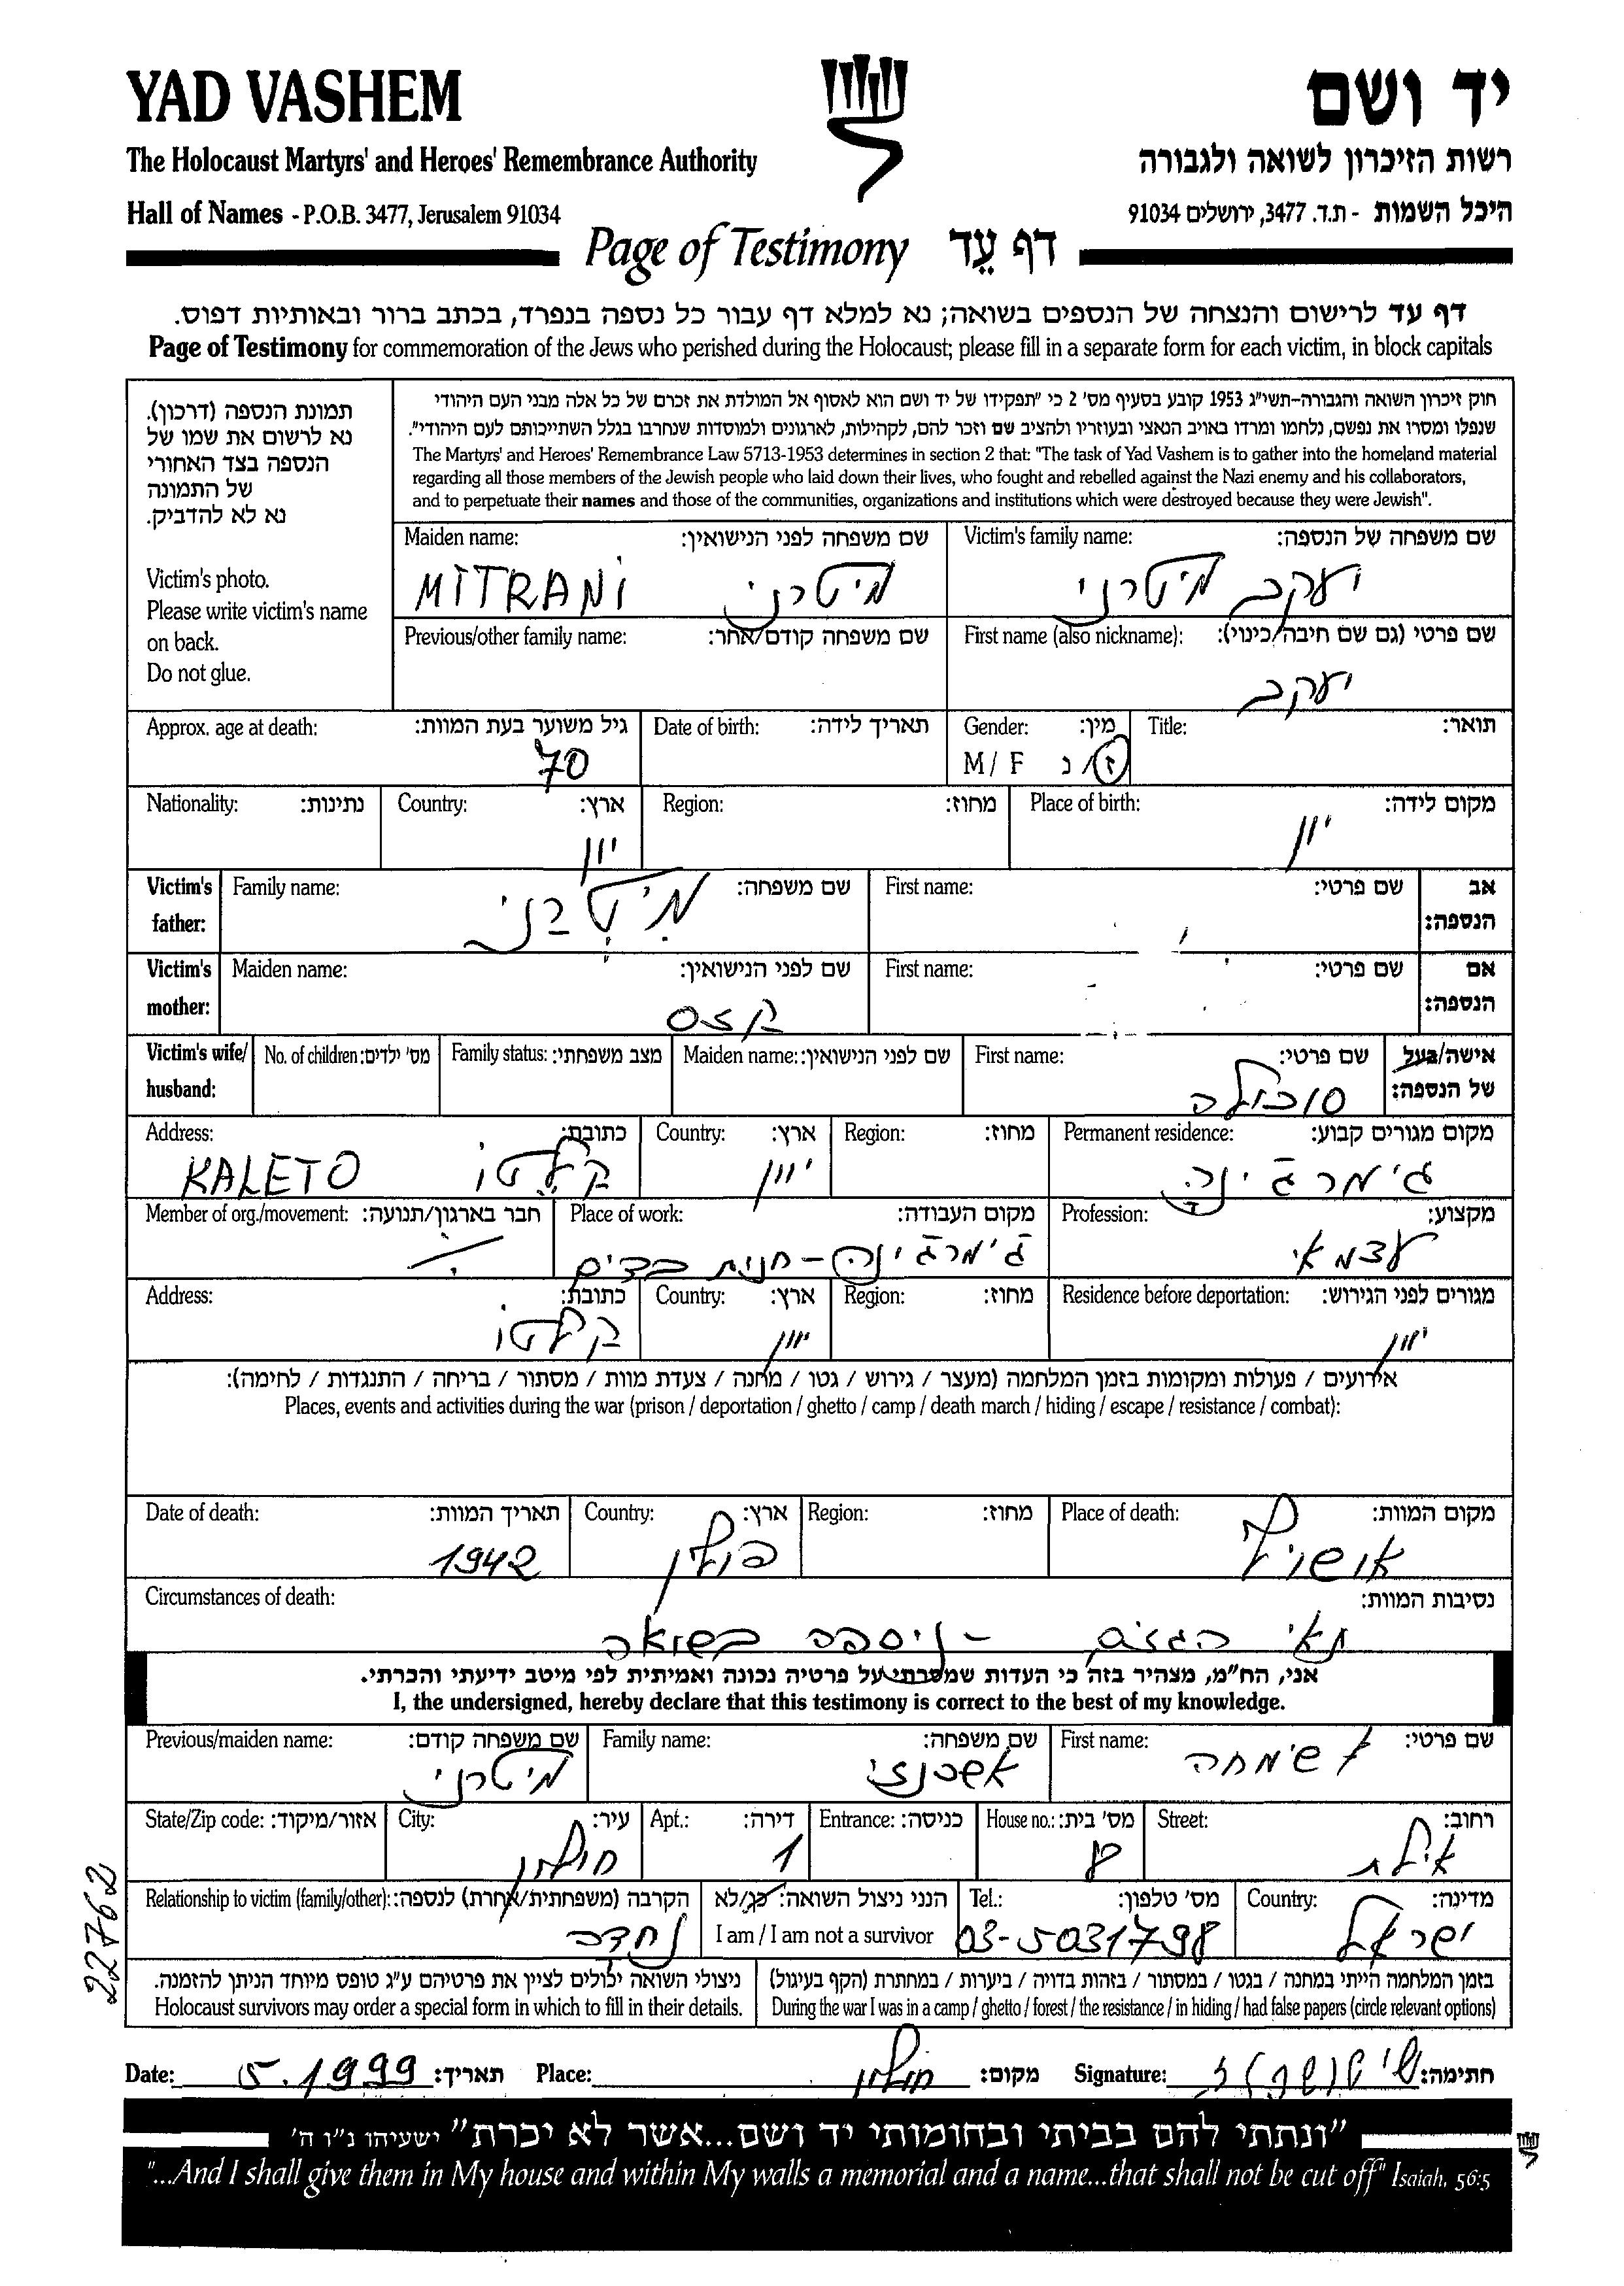 YAD VASHEM
יד ושם
The Holocaust Martyrs' and Heroes' Remembrance Authority
רשות הזיכרון לשואה ולגבורה
Hall of Names - P.O.B. 3477, Jerusalem 91034
היכל השמות - ת.ד. 3477, ירושלים 91034
Page of Testimony דף עד
דף עד לרישום והנצחה של הנספים בשואה; נא למלא דף עבור כל נספה בנפרד, בכתב ברור ובאותיות דפוס.
Page of Testimony for commemoration of the Jews who perished during the Holocaust; please fill in a separate form for each victim, in block capitals
תמונת הנספה (דרכון).
נא לרשום את שמו של
הנספה בצד האחורי
של התמונה
נא לא להדביק.
Victim's photo.
Please write victim's name
on back.
Do not glue.
חוק זיכרון השואה והגבורה-תשי"ג 1953 קובע בסעיף מס' 2 כי "תפקידו של יד ושם הוא לאסוף אל המולדת את זכרם של כל אלה מבני העם היהודי
שנפלו ומסרו את נפשם, נלחמו ומרדו באויב הנאצי ובעוזריו ולהציב שם וזכר להם, לקהילות, לארגונים ולמוסדות שנחרבו בגלל השתייכותם לעם היהודי".
The Martyrs' and Heroes' Remembrance Law 5713-1953 determines in section 2 that: "The task of Yad Vashem is to gather into the homeland material
regarding all those members of the Jewish people who laid down their lives, who fought and rebelled against the Nazi enemy and his collaborators,
and to perpetuate their names and those of the communities, organizations and institutions which were destroyed because they were Jewish".
Victim's family name: שם משפחה של הנספה:
יעקב מיטרני
Maiden name: שם משפחה לפני הנישואין:
MITRANI מיטרני
First name (also nickname): שם פרטי (גם שם חיבה/כינוי):
יעקב
Previous/other family name: שם משפחה קודם/אחר:
Title: תואר:
Gender: מין:
M / F ז/נ
Date of birth: תאריך לידה:
Approx. age at death: גיל משוער בעת המוות:
70
Place of birth: מקום לידה:
יון
Region: מחוז:
Country: ארץ:
יון
Nationality: נתינות:
Victim's father: אב הנספה:
First name: שם פרטי:
Family name: שם משפחה:
מיטרני
Victim's mother: אם הנספה:
First name: שם פרטי:
Maiden name: שם לפני הנישואין:
Victim's wife/husband: אישה/בעל של הנספה:
First name: שם פרטי:
סוכולה
Maiden name: שם לפני הנישואין:
Family status: מצב משפחתי:
No. of children: מס' ילדים:
Permanent residence: מקום מגורים קבוע:
Region: מחוז:
Country: ארץ:
יוון
Address: כתובת:
KALETO קלטו
Profession: מקצוע:
עצמאי
Place of work: מקום העבודה:
ג'ימרג'ינה - חנות בדים
Member of org./movement: חבר בארגון/תנועה:
Residence before deportation: מגורים לפני הגירוש:
יוון
Region: מחוז:
Country: ארץ:
יוון
Address: כתובת:
קלטו
אירועים / פעולות ומקומות בזמן המלחמה (מעצר / גירוש / גטו / מחנה / צעדת מוות / מסתור / בריחה / התנגדות / לחימה):
Places, events and activities during the war (prison / deportation / ghetto / camp / death march / hiding / escape / resistance / combat):
Place of death: מקום המוות:
אושויץ
Region: מחוז:
Country: ארץ:
פולין
Date of death: תאריך המוות:
1942
Circumstances of death: נסיבות המוות:
תאי הגזים - ניספה בשואה
אני, הח"מ, מצהיר בזה כי העדות שמסרתי על פרטיה נכונה ואמיתית לפי מיטב ידיעתי והכרתי.
I, the undersigned, hereby declare that this testimony is correct to the best of my knowledge.
First name: שם פרטי:
שימחה
Family name: שם משפחה:
אשכנזי
Previous/maiden name: שם משפחה קודם:
מיטרני
Street: רחוב:
אילת
House no.: מס' בית:
8
Entrance: כניסה:
Apt.: דירה:
1
City: עיר:
חולון
State/Zip code: אזור/מיקוד:
Country: מדינה:
ישראל
Tel.: מס' טלפון:
03-5031798
הנני ניצול השואה: כן/לא
I am / I am not a survivor
Relationship to victim (family/other): הקרבה (משפחתית/אחרת) לנספה:
נחדה
בזמן המלחמה הייתי במחנה / בגטו / במסתור / בזהות בדויה / ביערות / במחתרת (הקף בעיגול)
During the war I was in a camp / ghetto / forest / the resistance / in hiding / had false papers (circle relevant options)
ניצולי השואה יכולים לציין את פרטיהם ע"ג טופס מיוחד הניתן להזמנה.
Holocaust survivors may order a special form in which to fill in their details.
22762
Date: 5.1999 תאריך: Place: חולון מקום: Signature: חתימה:
"ונתתי להם בביתי ובחומותי יד ושם...אשר לא יכרת" ישעיהו נ"ו ה'
"...And I shall give them in My house and within My walls a memorial and a name...that shall not be cut off" Isaiah, 56:5